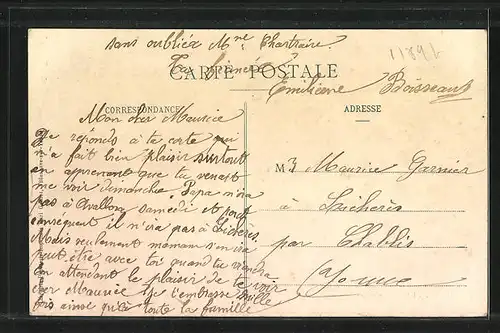 sans oublier Mme Chartraire.
Ta
CARTE POSTALE
Emilienne Boisseau
11896
CORRESPONDANCE
ADRESSE
Mon cher Maurice
Je réponds à ta carte qui
m'a fait bien plaisir surtout
en apprenant que tu venast
me voir dimanche. Papa n'ira
pas à Avallon samedi et par
conséquent il n'ira pas à Licheres.
Mais seulement maman s'en ira
peut être avec toi quand tu viendra
en attendant le plaisir de te voir
cher Maurice je t'embrasse mille
fois ainsi qu'à toute la famille
M. Maurice Garnier
à Licheres
par Chablis
Yonne